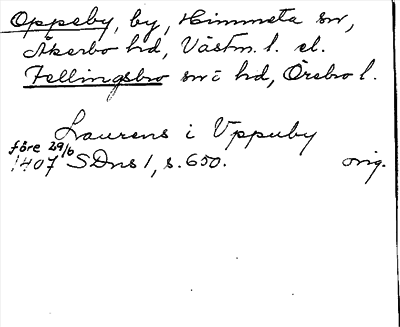 Oppeby, by, Himmeta sn,
Åkerbo hd, Västm. l. el.
Fellingsbro sn i hd, Örebro l.
Laurens i Uppuby
före 29/6
1407 SDns 1, s. 650. orig.